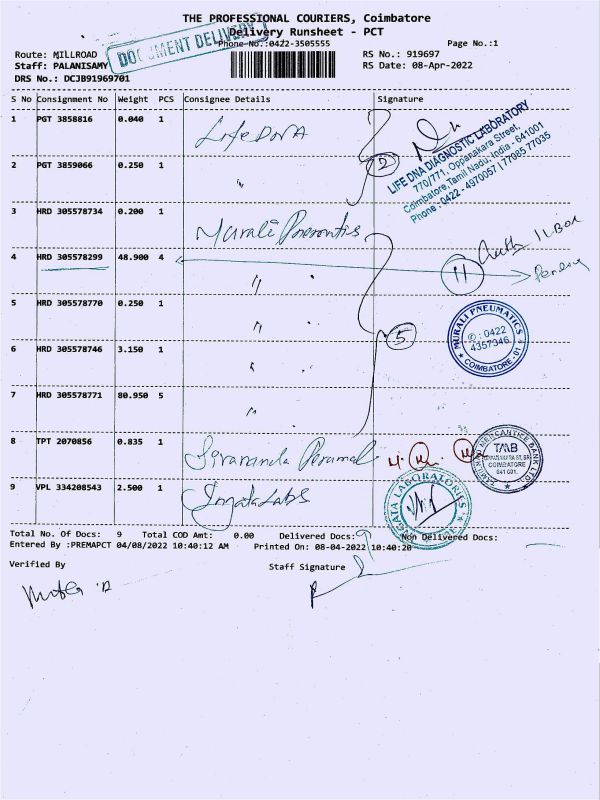 THE PROFESSIONAL COURIERS, Coimbatore
Delivery Runsheet - PCT
DOCUMENT DELIVERY
Phone No.:0422-3505555
Page No.:1
Route: MILLROAD
RS No.: 919697
Staff: PALANISAMY
RS Date: 08-Apr-2022
DRS No.: DCJB91969701
S No Consignment No Weight PCS Consignee Details Signature
1 PGT 3858816 0.040 1 Life DNA
2
LIFE DNA DIAGNOSTIC LABORATORY
770/771, Oppanakara Street,
Coimbatore, Tamil Nadu, India - 641001
Phone : 0422 - 4970057 / 77085 77035
2 PGT 3859066 0.250 1 "
3 HRD 305578734 0.200 1 Murali Pneumatics
4 HRD 305578299 48.900 4 " "
11 11 Box
Pending
5 HRD 305578770 0.250 1 " "
5
MURALI PNEUMATICS
✆ : 0422
4357346
COIMBATORE - 01
6 HRD 305578746 3.150 1 " "
7 HRD 305578771 80.950 5 "
8 TPT 2070856 0.835 1 Sivananda Perumal
MERCANTILE BANK LTD
TMB
COIMBATORE
641 001.
9 VPL 334208543 2.500 1 Ingata Labs
LABORATORIES
Total No. Of Docs: 9 Total COD Amt: 0.00 Delivered Docs: 9 Non Delivered Docs:
Entered By :PREMAPCT 04/08/2022 10:40:12 AM Printed On: 08-04-2022 10:40:20
Verified By Staff Signature